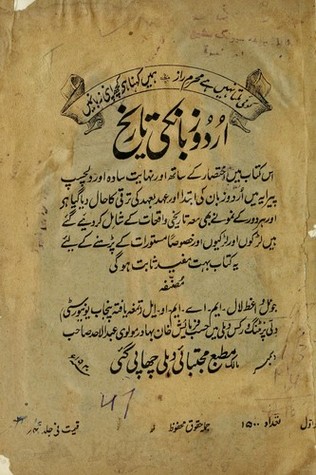 ہمیں کہنا ہے کچھ اپنی زباں میں
اُردو زبان کی تاریخ
اس کتاب میں اختصار کے ساتھ اور نہایت سادہ اور دلچسپ
پیرایہ میں اُردو زبان کی ابتدا اور عہد بعہد کی ترقی کا حال دیا گیا ہو
اور ہر دور کے نمونے بھی معہ تاریخی واقعات کے شامل کر دیے گئے
ہیں لڑکوں اور لڑکیوں اور خصوصاً مستورات کے پڑھنے کے لیے
یہ کتاب بہت مفید ثابت ہوگی
مصنفہ
لال۔ ایم۔ اے۔ ایم۔ او۔ ایل تمغہ یافتہ پنجاب یونیورسٹی
دلی پرنٹنگ ورکس دہلی میں حسب فرمایش خان بہادر مولوی عبدالاحد صاحب
مالک مطبع مجتبائی دہلی چھاپی گئی
47
اول
تعداد ۱۵۰۰
جملہ حقوق محفوظ
قیمت فی جلد